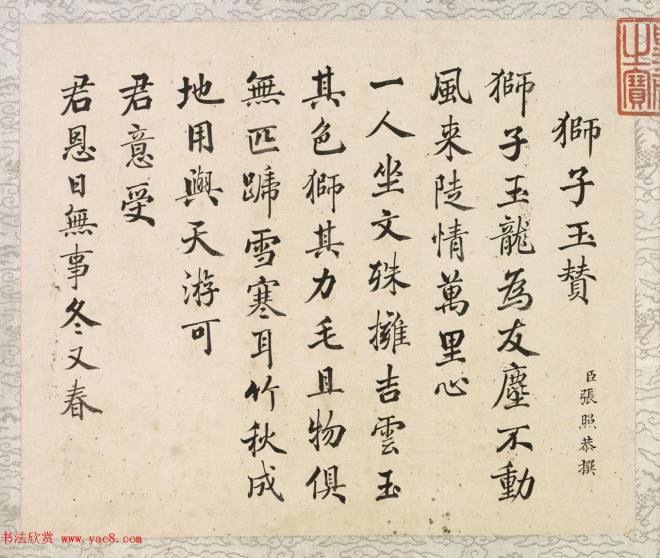 獅子玉贊
臣張照恭撰
獅子玉龍為友塵不動
風来陡情萬里心
一人坐文殊擁吉雲玉
其色獅其力毛且物俱
無匹蹄雪寒耳竹秋成
地用與天游可
君意受
君恩日無事冬又春
之寶
书法欣赏 www.yac8.com